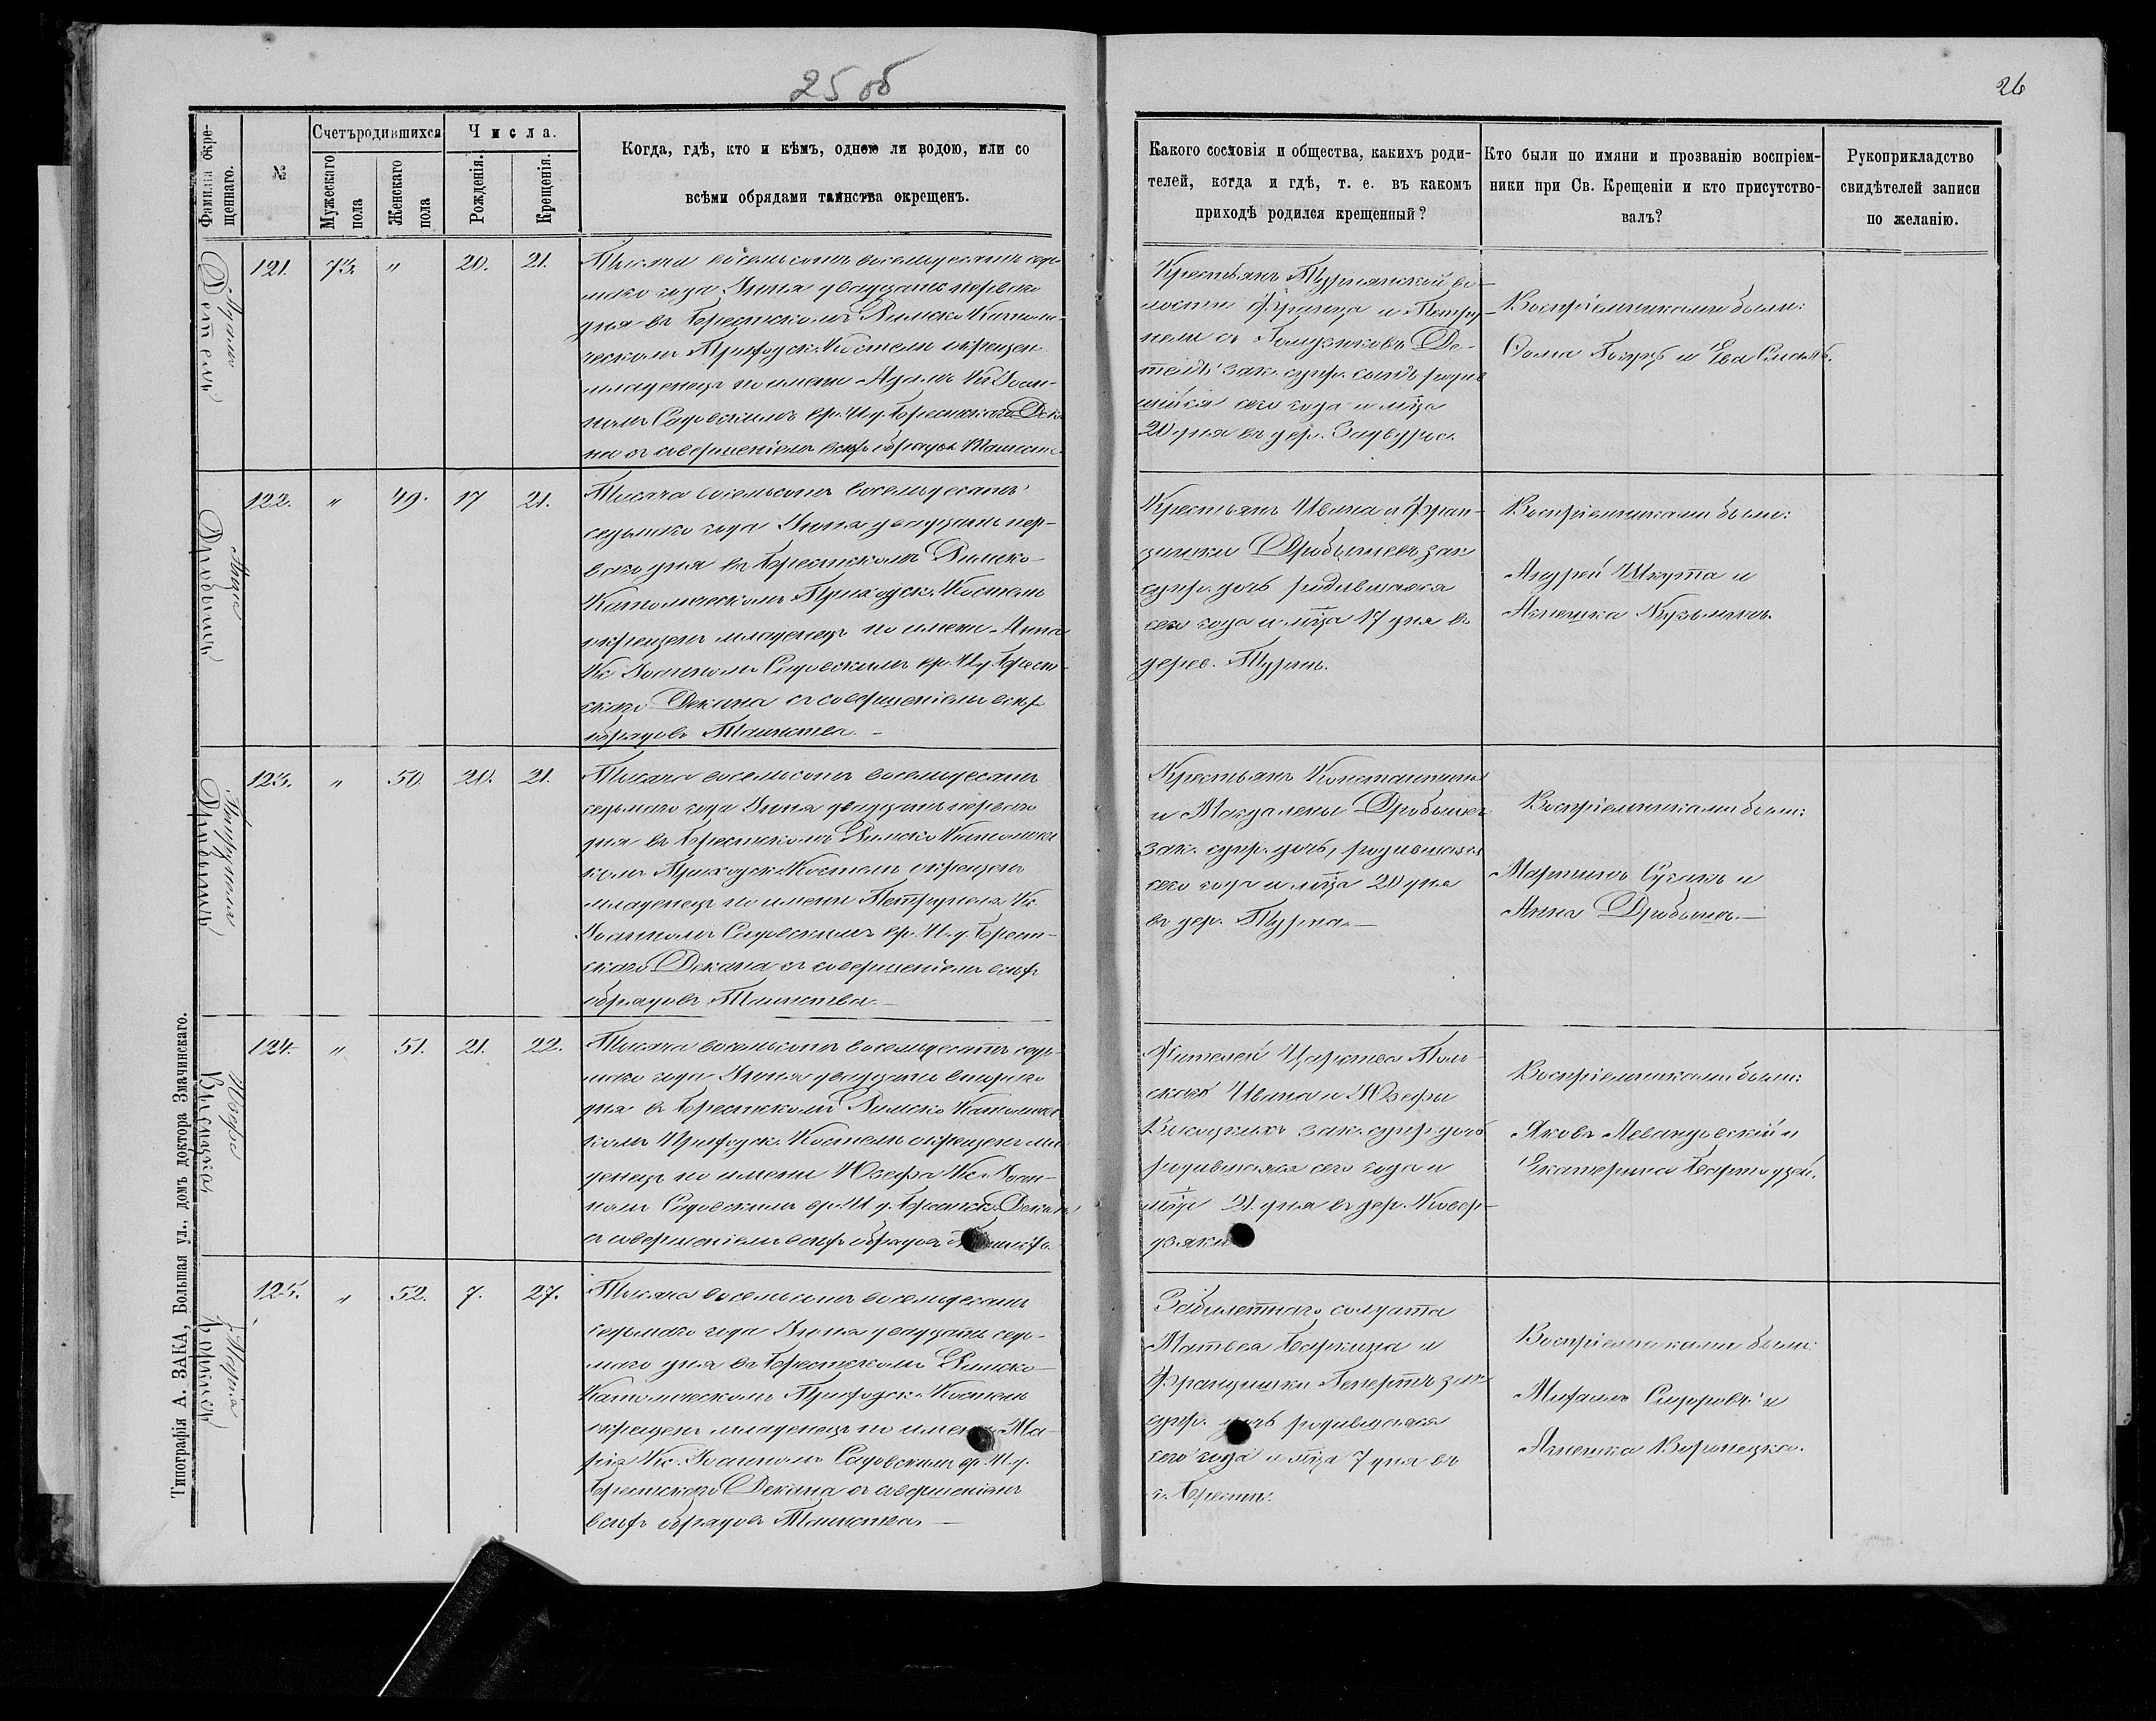 25 об
26
Фамилія окре-
щеннаго.
№
Счетъ родившихся
Мужескаго
пола
Женскаго
пола
Числа.
Рожденія.
Крещенія.
Когда, гдѣ, кто и кѣмъ, одною ли водою, или со
всѣми обрядами таинства окрещенъ.
Какого сословія и общества, какихъ роди-
телей, когда и гдѣ, т. е. въ какомъ
приходѣ родился крещенный?
Кто были по имяни и прозванію воспріем-
ники при Св. Крещеніи и кто присутство-
валъ?
Рукоприкладство
свидѣтелей записи
по желанію.
Адамъ
121.
73.
"
20.
21.
Тысяча восемьсотъ восемьдесятъ седь-
маго года Іюня двадцать перваго
дня въ Брестскомъ Римско Католи-
ческомъ Приходск. Костелѣ окрещенъ
младенецъ по имени Адамъ Кс. Іоан-
номъ Садовскимъ вр. И. д. Брестскаго Дека
на съ совершеніемъ всѣхъ обрядовъ Таинст
Крестьянъ Турнянской во-
лости Франца и Петру-
нели съ
зак. супр. сынъ родив
шійся сего года и мѣца
20 дня въ дер.
Воспріемниками были:
Ѳома и Ева
Анна
122.
"
49.
17
21.
Тысяча восемьсотъ восемьдесятъ
седьмаго года Іюня двадцать пер-
ваго дня въ Брестскомъ Римско-
Католическомъ Приходск. Костелѣ
окрещенъ младенецъ по имени Анна
Кс. Іоанномъ Садовскимъ вр. И. д. Брест-
скаго Декана съ совершеніемъ всѣхъ
обрядовъ Таинства. -
Крестьянъ Ивана и Фран-
цишки зак
супр. дочь родившаяся
сего года и мѣца 17 дня въ
дерев. Турнѣ.
Воспріемниками были:
Андрей Шкута и
Агнешка
Петрунеля
123.
"
50.
20.
21.
Тысяча восемьсотъ восемьдесятъ
седьмаго года Іюня двадцать перваго
дня въ Брестскомъ Римско Католичес
комъ Приходск. Костелѣ окрещенъ
младенецъ по имени Петрунеля Кс.
Іоанномъ Садовскимъ вр. И. д. Брест-
скаго Декана съ совершеніемъ всѣхъ
обрядовъ Таинства. -
Крестьянъ Константина
и Магдалены
зак. супр. дочь, родившаяся
сего года и мѣца 20 дня
въ дер. Турна. -
Воспріемниками были:
Мартинъ и
Анна
Юзефа
124.
"
51.
21.
22.
Тысяча восемьсотъ восемьдесятъ седь-
маго года Іюня двадцать втораго
дня въ Брестскомъ Римско Католичес
комъ Приходск. Костелѣ окрещенъ мла
денецъ по имени Юзефа Кс. Іоан-
номъ Садовскимъ вр. И. д. Брестск. Декана
съ совершеніемъ всѣхъ обрядовъ
Жителей Царства Поль-
скаго Ивана и Юзефы
Висоцкихъ зак. супр. дочь
родившаяся сего года и
мѣца 21 дня въ дер.
Воспріемниками были:
Яковъ Левандовскій и
Екатерина
Марія
125.
"
52.
7.
27.
Тысяча восемьсотъ восемьдесятъ
седьмаго года Іюня двадцать седь-
маго дня въ Брестскомъ Римско-
Католическомъ Приходск. Костелѣ
окрещенъ младенецъ по имени Ма-
рія Кс. Іоанномъ Садовскимъ вр. И. д.
Брестскаго Декана съ совершеніемъ
всѣхъ обрядовъ Таинства. -
солдата
Матвея и
Францишки зак
супр. дочь родившаяся
сего года и мѣца 7 дня въ
г. Брестѣ.
Воспріемниками были:
и
Агнешка
Типографія А. ЗАКА, Большая ул., домъ доктора Змачинскаго.